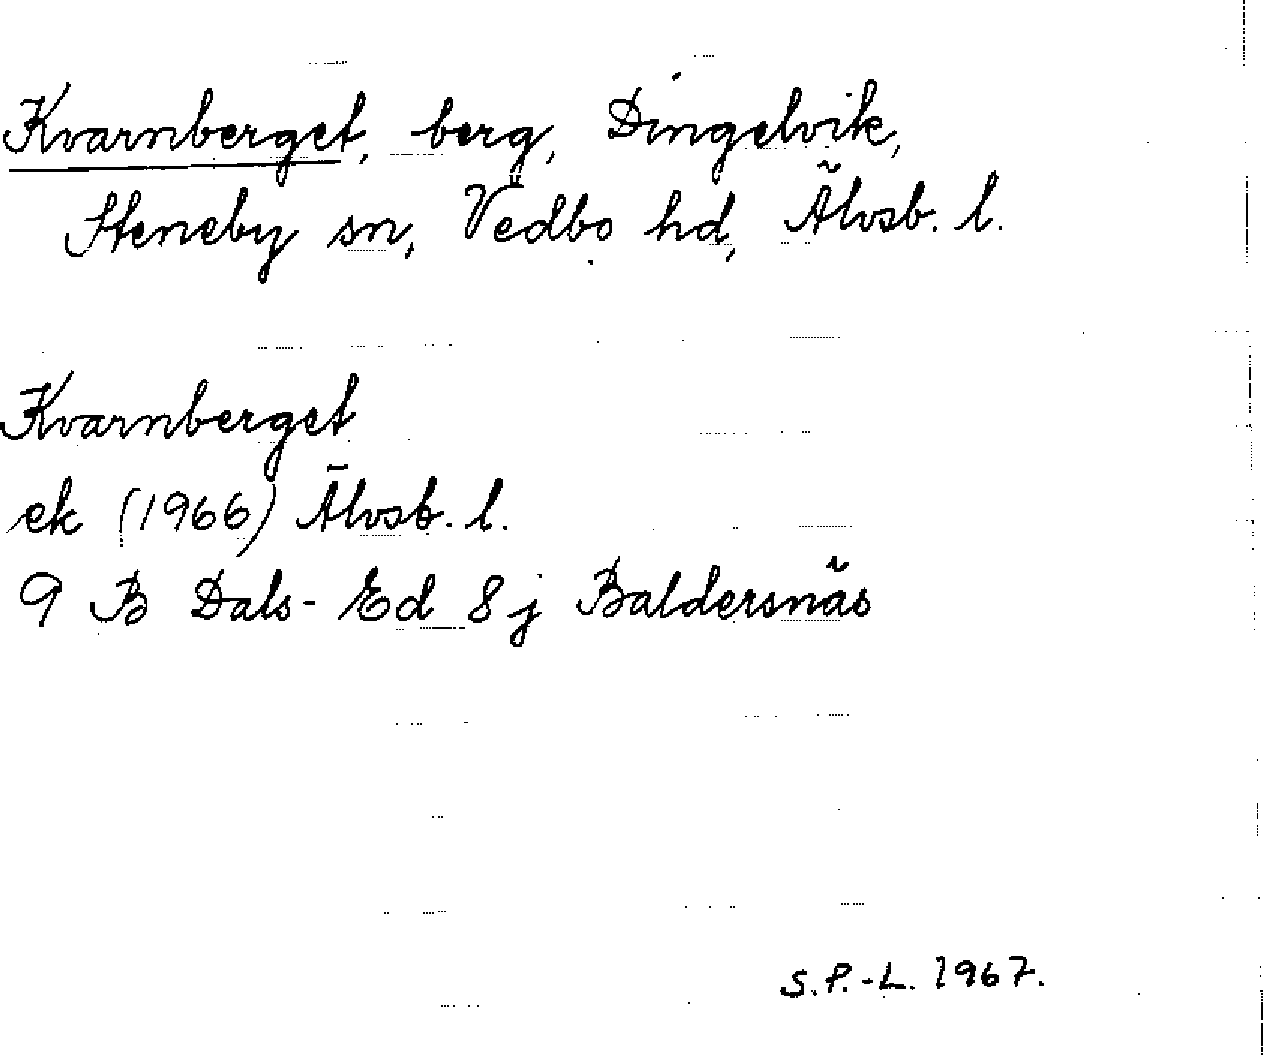 Kvarnberget, berg, Dingelvik,
Steneby sn, Vedbo hd, Älvsb. l.
Kvarnberget
ek (1966) Älvsb. l.
9 B Dals-Ed 8 j Baldersnäs
S.P.-L. 1967.